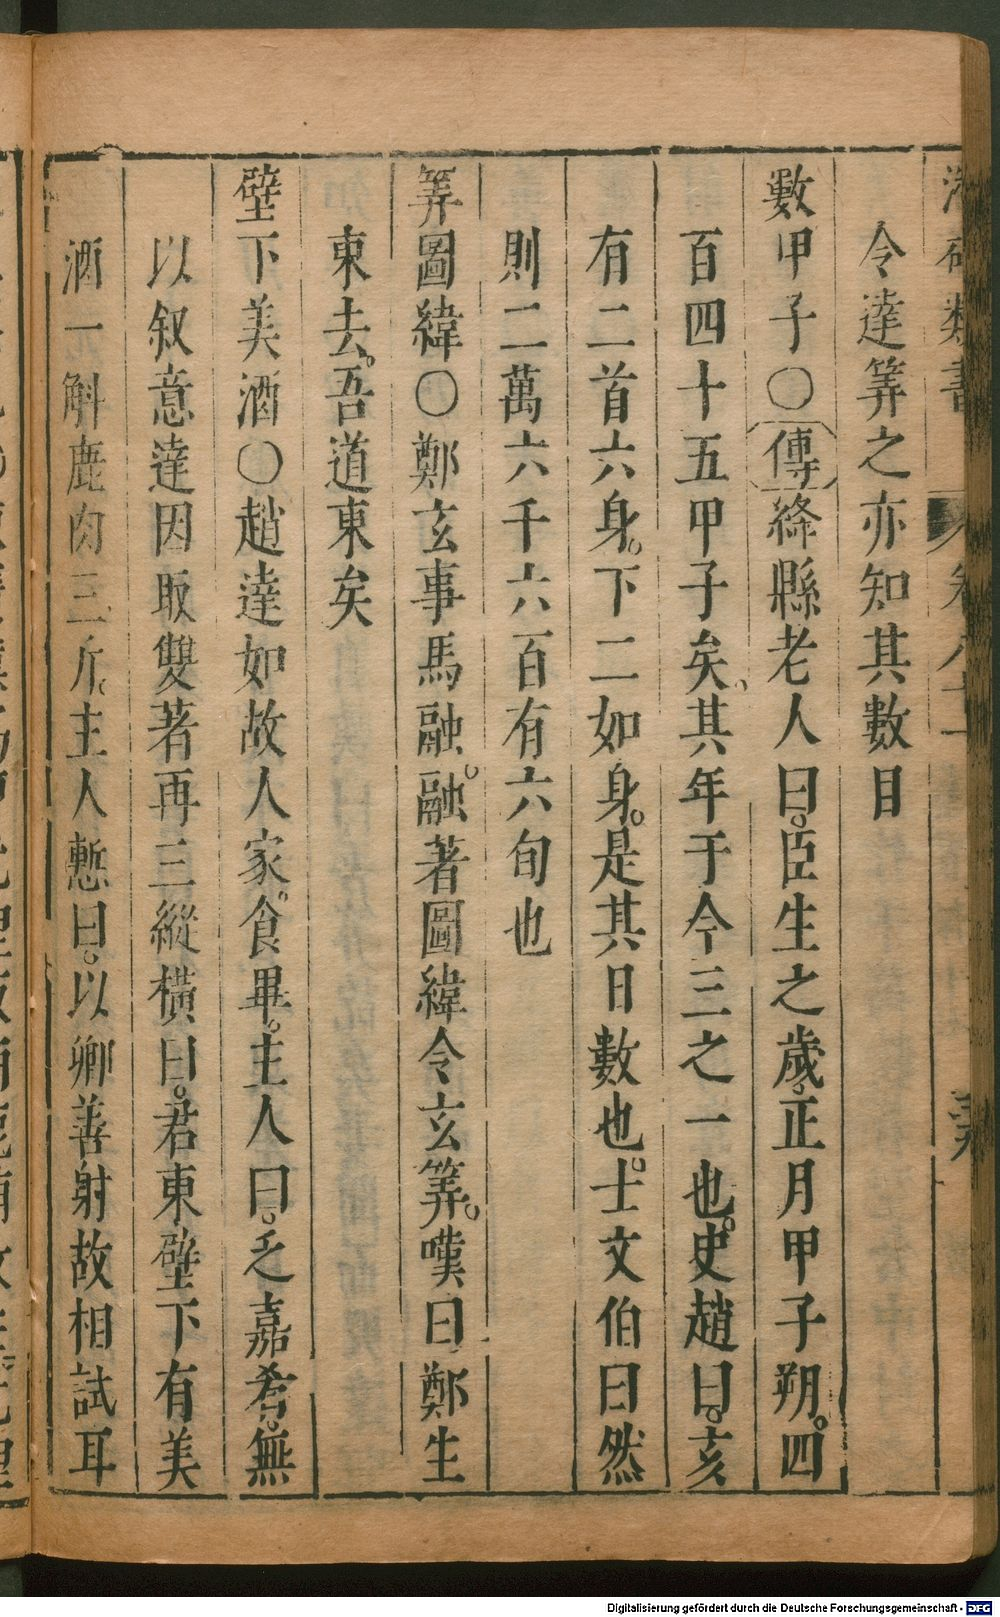 令達筭之亦知其數目
數甲子○傳絳縣老人曰。臣生之歲。正月甲子朔。四
百四十五甲子矣。其年于今三之一也。史趙曰。亥
有二首六身。下二如身。是其日數也。士文伯曰然
則二萬六千六百有六旬也
筭圖緯○鄭玄事馬融。融著圖緯令玄筭。嘆曰鄭生
東去。吾道東矣
壁下美酒○趙達如故人家。食畢。主人曰。乏嘉肴。無
以叙意達因取雙著再三縱橫曰。君東壁下有美
酒一斛鹿肉三斤。主人慙曰。以卿善射故相試耳
Digitalisierung gefördert durch die Deutsche Forschungsgemeinschaft - DFG